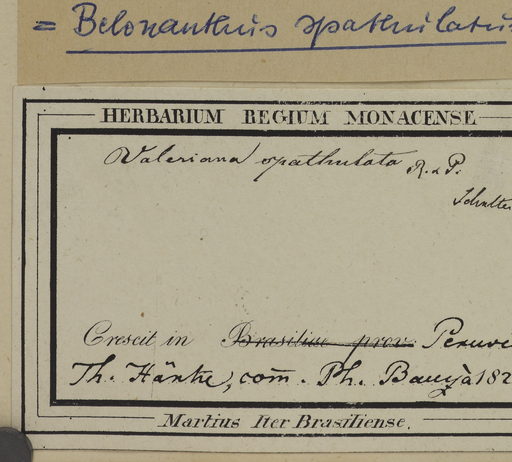 = Belonanthus spathulatus
HERBARIUM REGIUM MONACENSE
Valeriana spathulata R. & P.
Schultes
Crescit in Brasiliae prov. Peruvi
Th. Hänke, com̄. Ph. 182
Martius Iter Brasiliense.